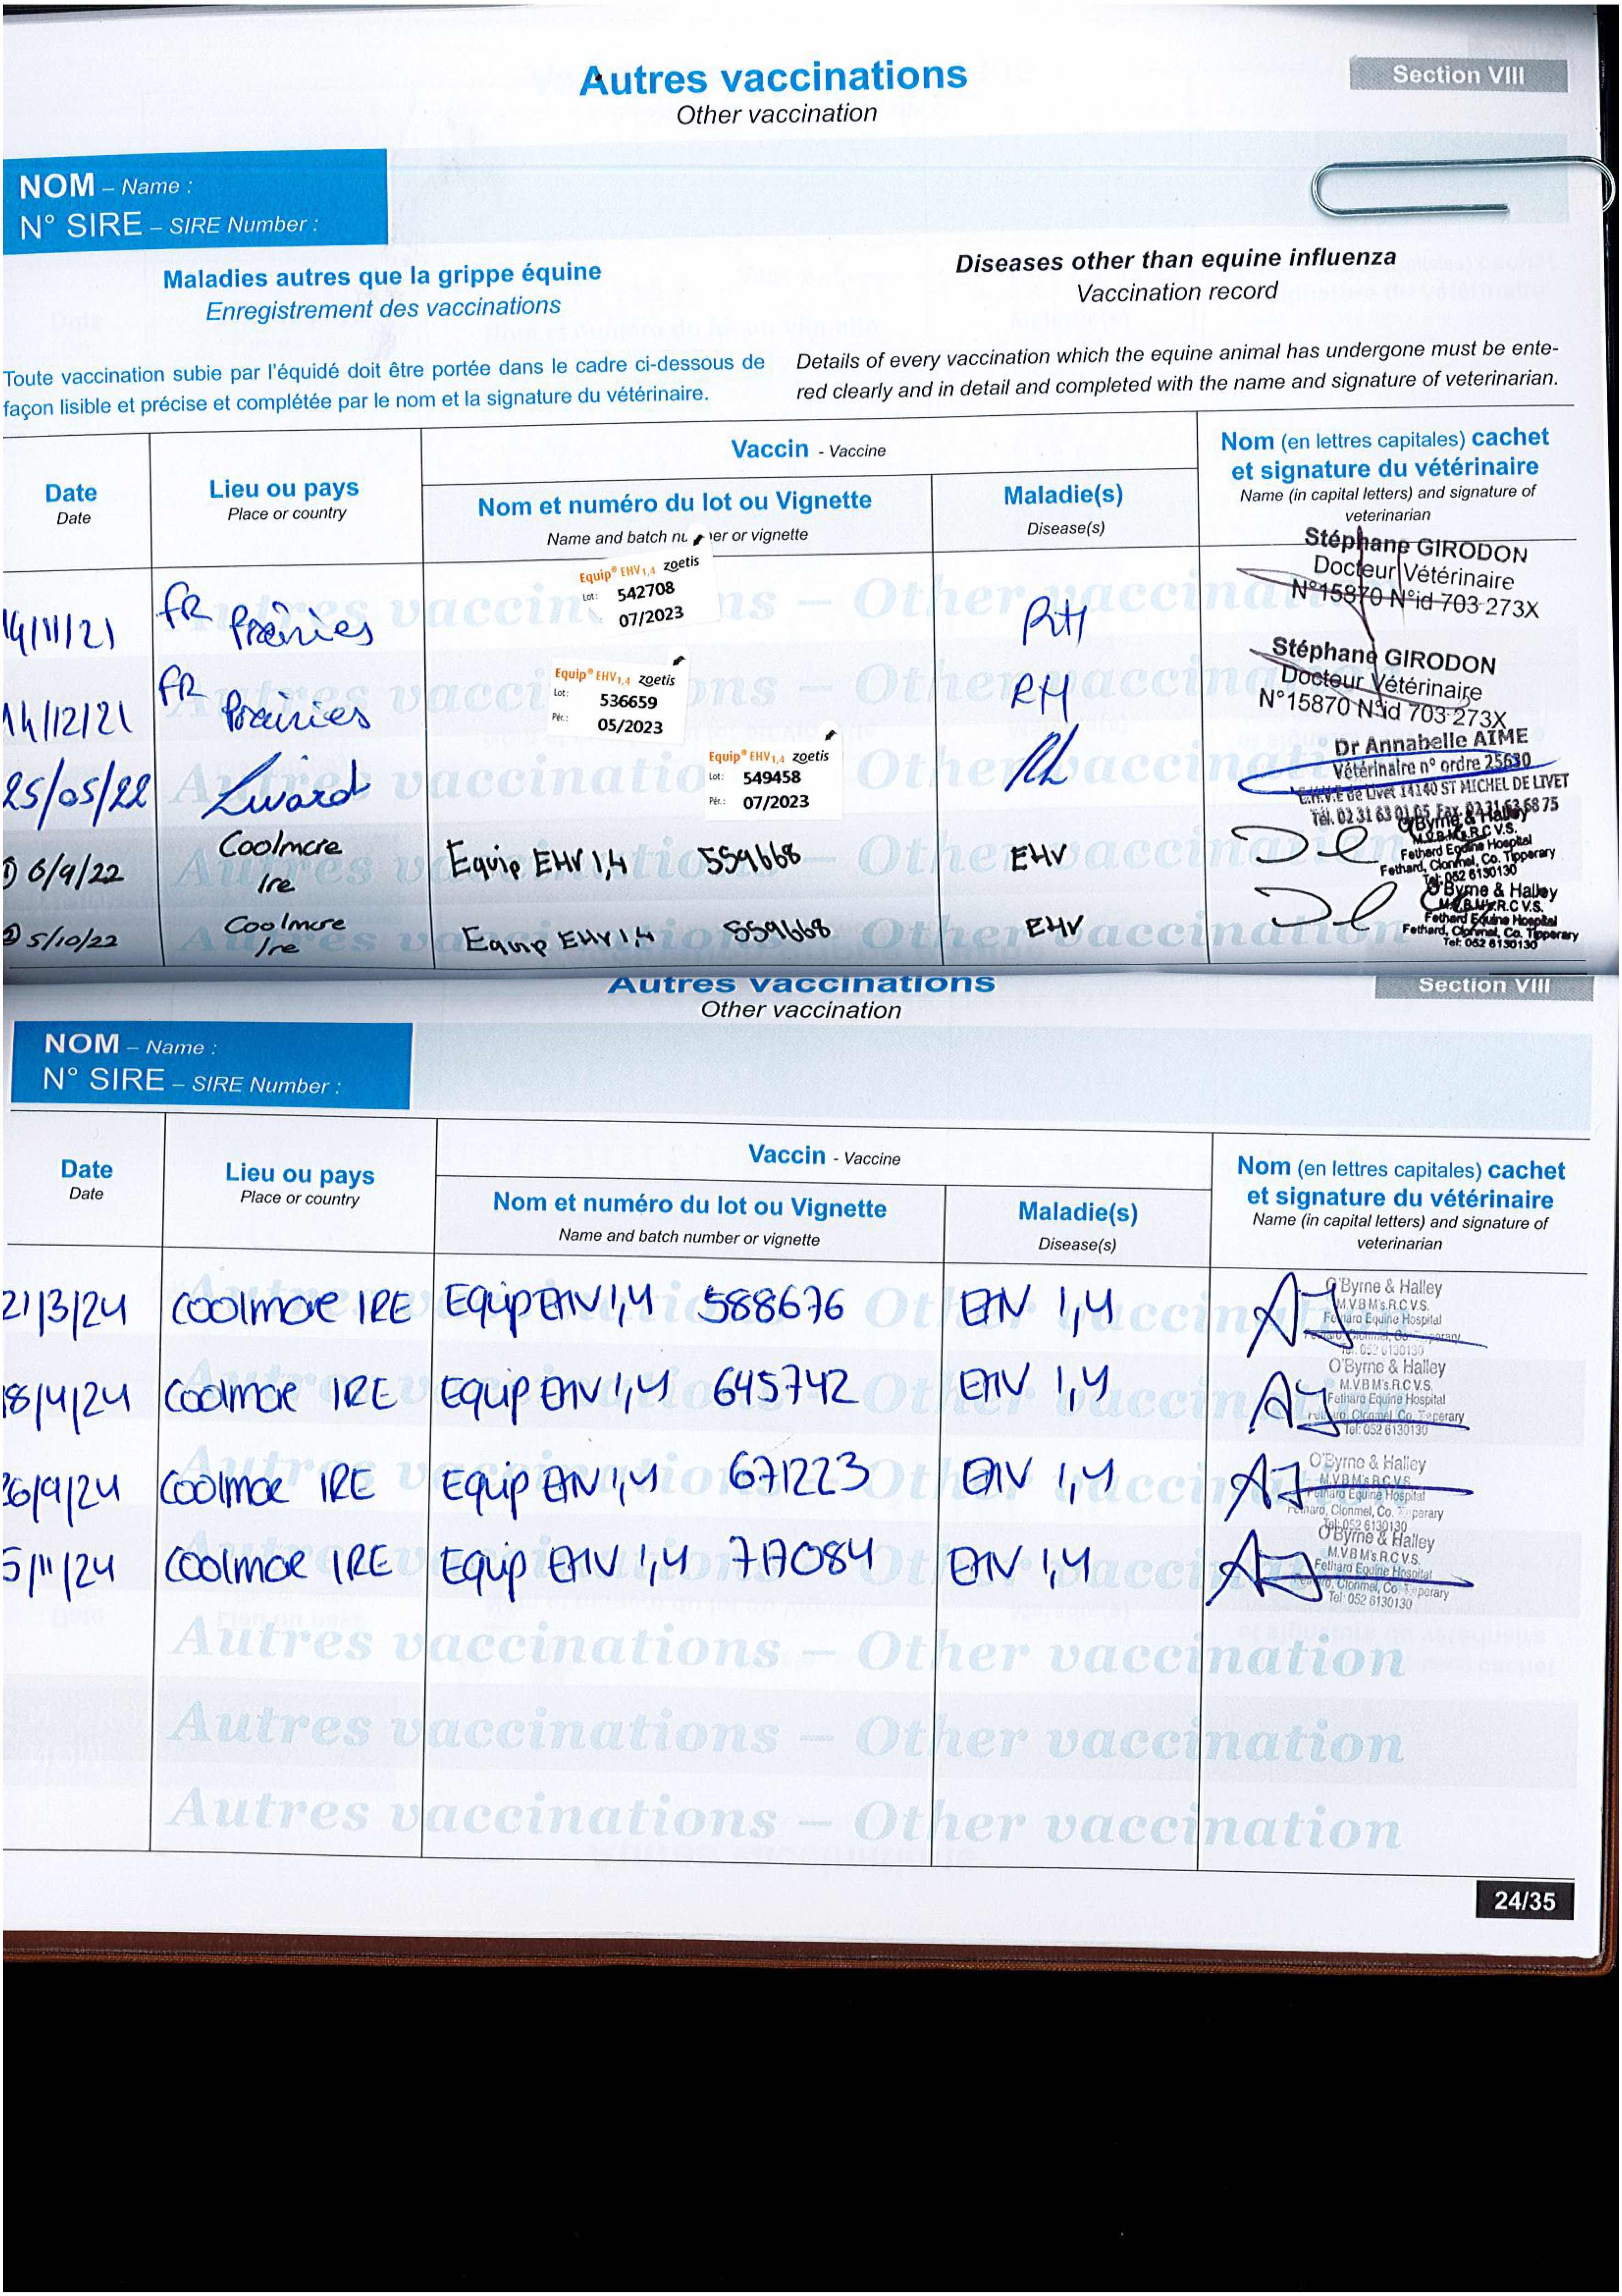 Autres vaccinations
Section VIII
Other vaccination
NOM – Name :
N° SIRE – SIRE Number :
Maladies autres que la grippe équine
Enregistrement des vaccinations
Diseases other than equine influenza
Vaccination record
Toute vaccination subie par l'équidé doit être portée dans le cadre ci-dessous de
façon lisible et précise et complétée par le nom et la signature du vétérinaire.
Details of every vaccination which the equine animal has undergone must be ente-
red clearly and in detail and completed with the name and signature of veterinarian.
Date
Date
Lieu ou pays
Place or country
Vaccin - Vaccine
Nom et numéro du lot ou Vignette
Name and batch nu er or vignette
Maladie(s)
Disease(s)
Nom (en lettres capitales) cachet
et signature du vétérinaire
Name (in capital letters) and signature of
veterinarian
FR
Prairies
Equip® EHV1,4 zoetis
Lot: 542708
07/2023
RH
Stéphane GIRODON
Docteur Vétérinaire
N°15870 N°id 703 273X
14/12/21
FR
Prairies
Equip® EHV1,4 zoetis
Lot: 536659
Pér.: 05/2023
RH
Stéphane GIRODON
Docteur Vétérinaire
N°15870 N°id 703 273X
25/05/22
Equip® EHV1,4 zoetis
Lot: 549458
Pér.: 07/2023
Rh
Dr Annabelle AIME
Vétérinaire n° ordre 25630
C.H.V.E de Livet 14140 ST MICHEL DE LIVET
Tél. 02 31 63 01 05 Fax 02 31 63 68 75
① 6/9/22
Coolmore
Ire
Equip EHV 1,4 559668
EHV
O'Byrne & Halley
M.V.B.M's.R.C.V.S.
Fethard Equine Hospital
Fethard, Clonmel, Co. Tipperary
Tel: 052 6130130
② 5/10/22
Coolmore
Ire
Equip EHV 1,4 559668
EHV
O'Byrne & Halley
M.V.B.M's.R.C.V.S.
Fethard Equine Hospital
Fethard, Clonmel, Co. Tipperary
Tel: 052 6130130
Autres vaccinations
Section VIII
Other vaccination
NOM – Name :
N° SIRE – SIRE Number :
Date
Date
Lieu ou pays
Place or country
Vaccin - Vaccine
Nom et numéro du lot ou Vignette
Name and batch number or vignette
Maladie(s)
Disease(s)
Nom (en lettres capitales) cachet
et signature du vétérinaire
Name (in capital letters) and signature of
veterinarian
21/3/24 Coolmore IRE Equip EHV 1,4 588676 EHV 1,4
O'Byrne & Halley
M.V.B M's.R.C.V.S.
Fethard Equine Hospital
Fethard, Clonmel, Co. Tipperary
Tel: 052 6130130
18/4/24 Coolmore IRE Equip EHV 1,4 645742 EHV 1,4
O'Byrne & Halley
M.V.B M's.R.C.V.S.
Fethard Equine Hospital
Fethard, Clonmel, Co. Tipperary
Tel: 052 6130130
26/9/24 Coolmore IRE Equip EHV 1,4 671223 EHV 1,4
O'Byrne & Halley
M.V.B M's.R.C.V.S.
Fethard Equine Hospital
Fethard, Clonmel, Co. Tipperary
Tel: 052 6130130
5/11/24 Coolmore IRE Equip EHV 1,4 EHV 1,4
O'Byrne & Halley
M.V.B M's.R.C.V.S.
Fethard Equine Hospital
Fethard, Clonmel, Co. Tipperary
Tel: 052 6130130
Autres vaccinations – Other vaccination
Autres vaccinations – Other vaccination
Autres vaccinations – Other vaccination
24/35